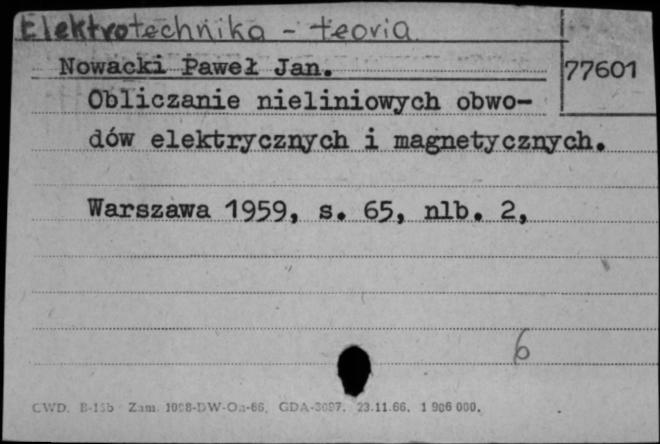 Elektrotechnika - teoria
Nowacki Paweł Jan.
77601
Obliczanie nieliniowych obwo-
dów elektrycznych i magnetycznych.
Warszawa 1959, s. 65, nlb. 2,
6
CWD. Zam. GDA-3097. 23.11.66. 1 906 000.